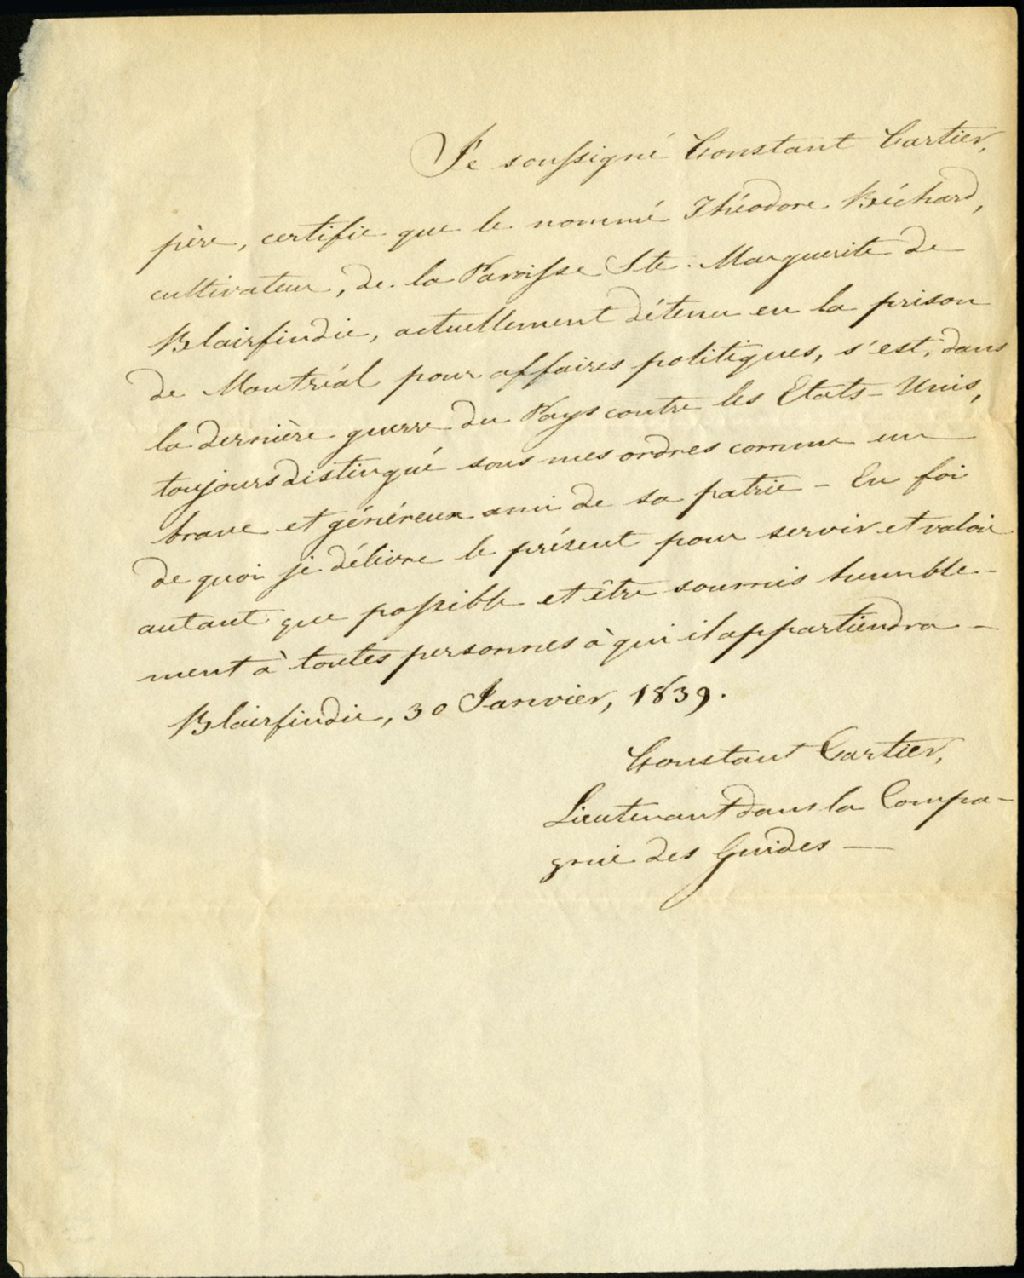 Je soussigné Constant Cartier,
père, certifie que le nommé Théodore Béchard,
cultivateur, de la Paroisse Ste. Marguerite de
Blairfindie, actuellement détenu en la prison
de Montréal pour affaires politiques, s'est, dans
la dernière guerre du Pays contre les Etats-Unis,
toujours distingué sous mes ordres comme un
brave et généreux ami de sa patrie - En foi
de quoi je délivre le présent pour servir et valoir
autant que possible et être soumis humble-
ment à toutes personnes à qui il appartiendra -
Blairfindie, 30 Janvier, 1839.
Constant Cartier,
Lieutenant dans la Compa-
gnie des Guides -